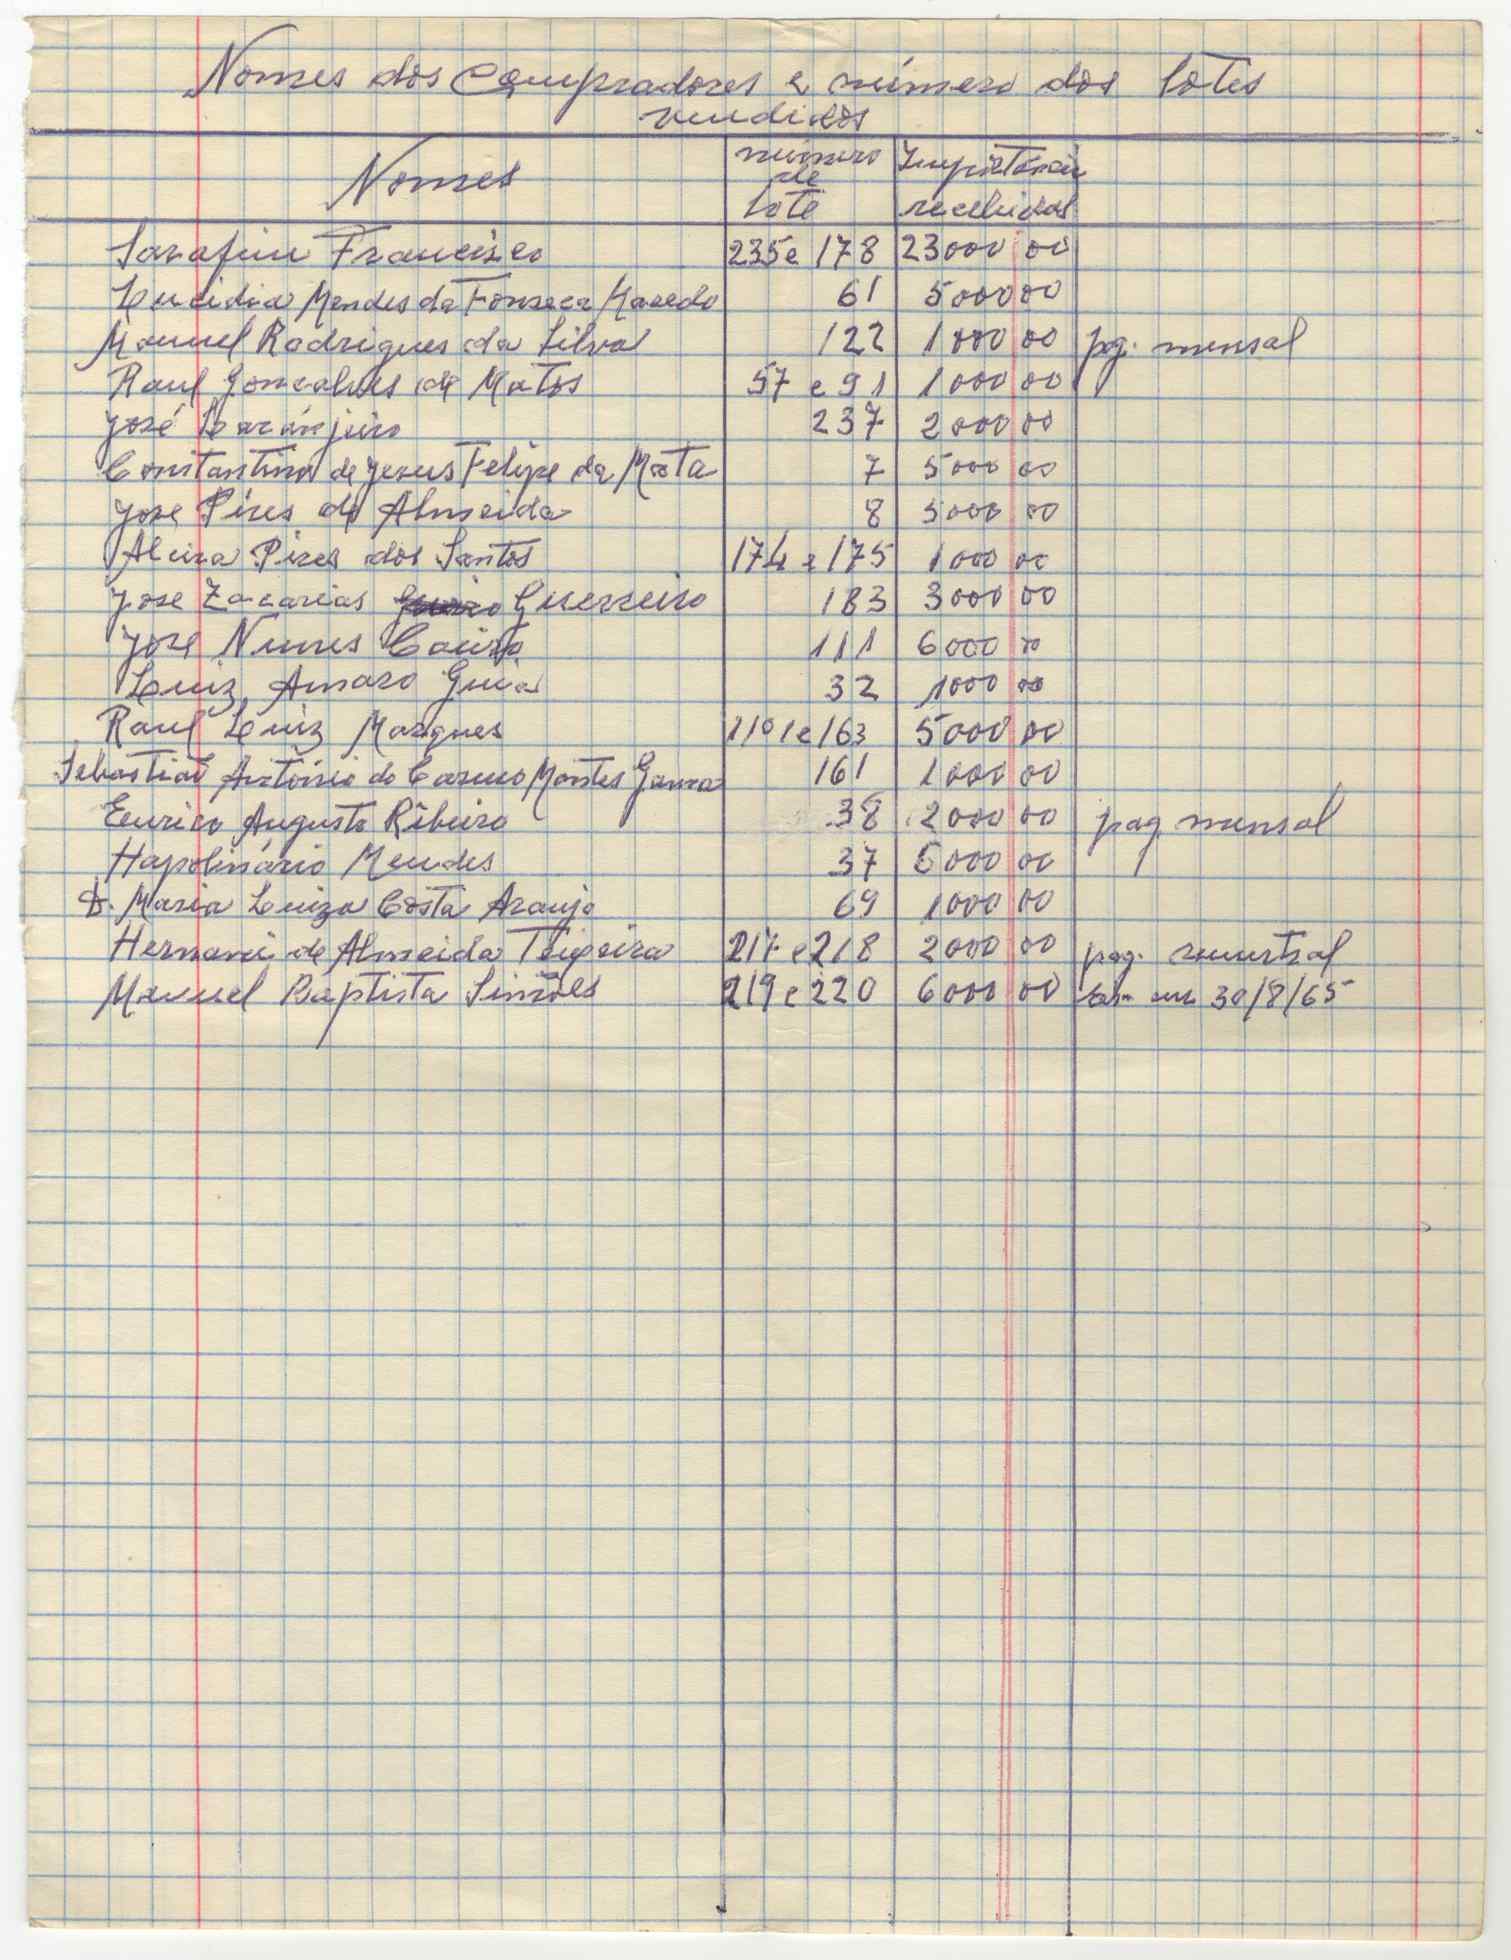 Nomes dos Compradores e número dos lotes
vendidos
Nomes número de lote Importância recebidas
Sarafim Francisco 235 e 178 23000 00
Lucidia Mendes da Fonseca Macedo 61 5000 00
Manuel Rodrigues da Silva 122 1000 00 pag. mensal
Raul Gonçalves de Matos 57 e 91 1000 00
José Laranjeiro 237 2000 00
Constantino de Jesus Felipe da Mata 7 5000 00
Jose Pires de Almeida 8 5000 00
Alcina Pires dos Santos 174 e 175 1000 00
Jose Zacarias Guerreiro 183 3000 00
Jose Nunes 111 6000 00
Luiz Amaro Guia 32 1000 00
Raul Luiz Marques e 163 5000 00
Sebastião António do Carmo Montes Gama 161 1000 00
Eurico Augusto Ribeiro 38 2000 00 pag mensal
Hapolinário Mendes 37 6000 00
D. Maria Luiza Costa Araujo 69 1000 00
Hernani de Almeida Teixeira 217 e 218 2000 00 pag. semestral
Manuel Baptista Simões 219 e 220 6000 00 em 30/8/65